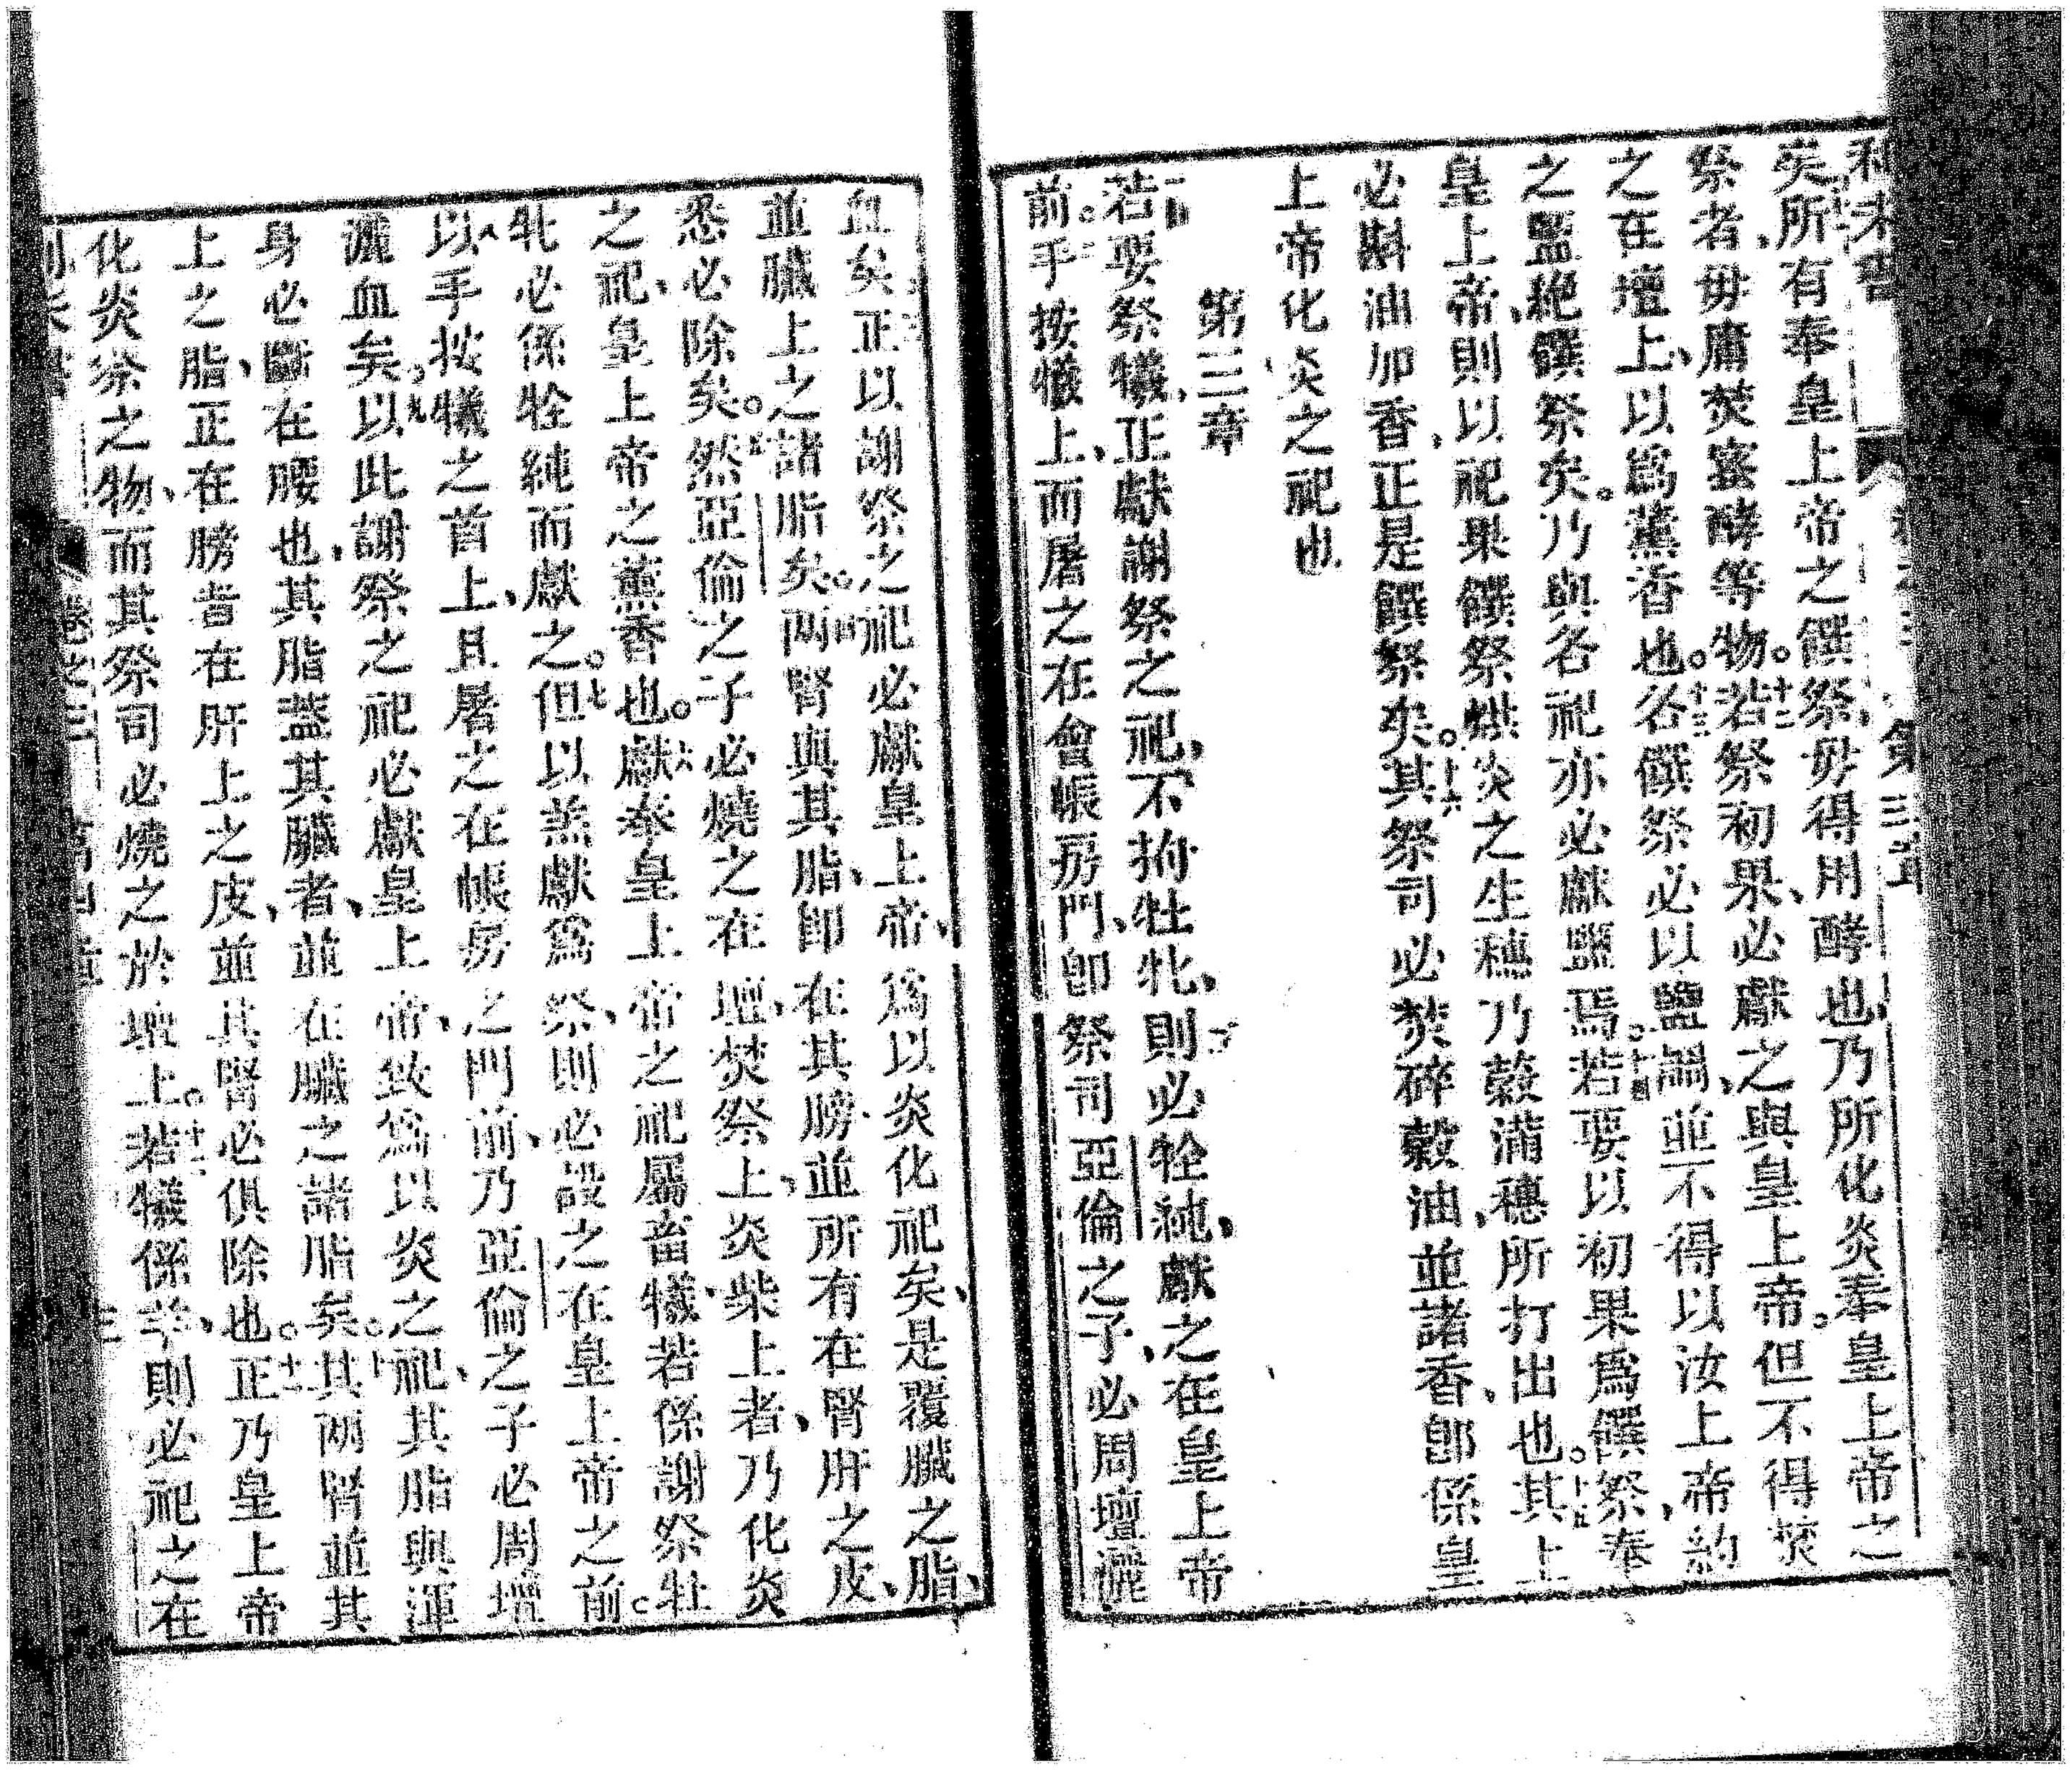 利未書 第三章
矣所有奉皇上帝之饌祭毋得用酵也乃所化炎奉皇上帝之
祭者毋庸焚蜜酵等物。十二若祭初果必獻之與皇上帝。但不得焚
之在壇上、以爲薰香也。十三各饌祭必以鹽鬺、並不得以汝上帝約
之鹽絶饌祭矣。乃與各祀亦必獻鹽焉。十四若要以初果爲饌祭、奉
皇上帝、則以祀果饌祭烘炎之生穗乃穀滿穗所打出也。十五其上
必斟油加香、正是饌祭矣。十六其祭司必焚碎穀油、並諸香、卽係皇
上帝化炎之祀也
第三章
一若要祭犧、正獻謝祭之祀、不拘牡牝、則必牷純、獻之在皇上帝
前。二手按犧上、而屠之在會帳房門、卽祭司亞倫之子、必周壇灑
血矣。三正以謝祭之祀必獻皇上帝、爲以炎化祀矣、是覆臟之脂、
並臟上之諸脂矣。四兩腎與其脂、卽在其膀並所有在腎肝之皮、
悉必除矣。五然亞倫之子必燒之在壇、焚祭上、炎柴上者、乃化炎
之祀、皇上帝之薰香也。六獻奉皇上帝之祀屬畜犧、若係謝祭牡
牝必係牷純而獻之。七但以羔獻爲祭、則必設之在皇上帝之前。
八以手按犧之首上、且屠之在帳房之門前、乃亞倫之子必周壇
灑血矣。九以此謝祭之祀必獻皇上帝、致爲以炎之祀、其脂與渾
身必斷在腰也、其脂蓋其臟者、並在臟之諸脂矣。十其兩腎並其
上之脂、正在膀者在肝上之皮、並其腎必俱除也。十一正乃皇上帝
化炎祭之物、而其祭司必燒之於壇上。十二若犧係羊、則必祀之在
卷之三